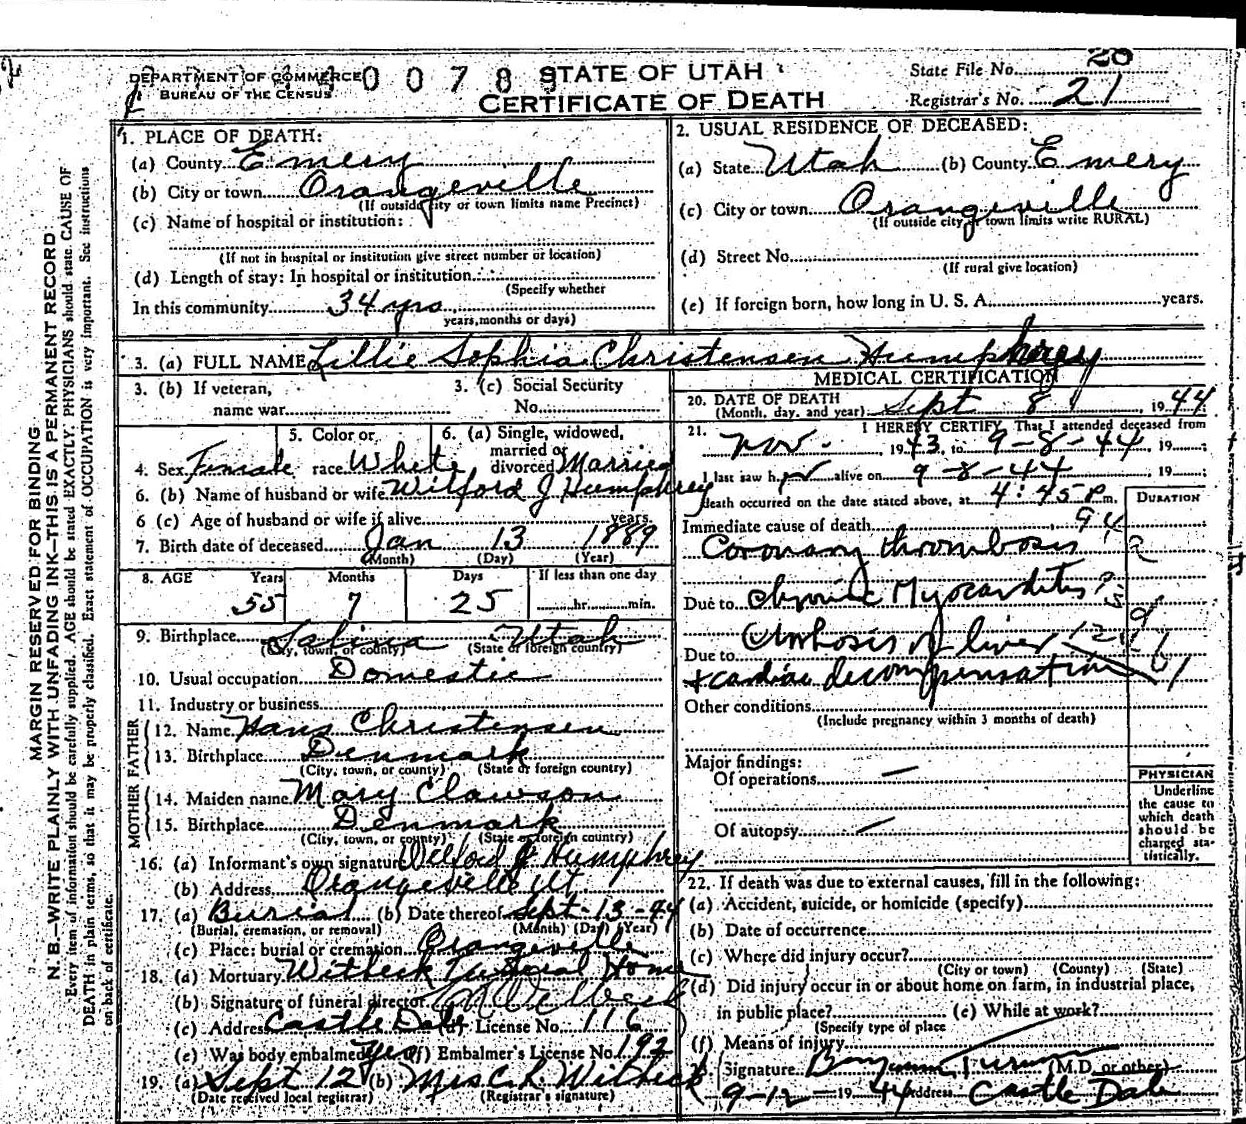 DEPARTMENT OF COMMERCE
BUREAU OF THE CENSUS
0 0 7 8 9
STATE OF UTAH
CERTIFICATE OF DEATH
State File No. 20
Registrar's No. 21
MARGIN RESERVED FOR BINDING
N. B.—WRITE PLAINLY WITH UNFADING INK—THIS IS A PERMANENT RECORD
Every item of information should be carefully supplied. AGE should be stated EXACTLY. PHYSICIANS should state CAUSE OF
DEATH in plain terms, so that it may be properly classified. Exact statement of OCCUPATION is very important. See instructions
on back of certificate.
1. PLACE OF DEATH:
(a) County Emery
(b) City or town Orangeville
(If outside city or town limits name Precinct)
(c) Name of hospital or institution:
(If not in hospital or institution give street number or location)
(d) Length of stay: In hospital or institution
(Specify whether
In this community 34 yrs
years, months or days)
2. USUAL RESIDENCE OF DECEASED:
(a) State Utah (b) County Emery
(c) City or town Orangeville
(If outside city or town limits write RURAL)
(d) Street No.
(If rural give location)
(e) If foreign born, how long in U. S. A. years.
3. (a) FULL NAME Lillie Sophia Christensen Humphrey
3. (b) If veteran,
name war
3. (c) Social Security
No.
4. Sex Female
5. Color or
race White
6. (a) Single, widowed,
married or
divorced Married
6. (b) Name of husband or wife Wilford J Humphrey
6 (c) Age of husband or wife if alive years
7. Birth date of deceased Jan 13 1889
(Month) (Day) (Year)
8. AGE Years Months Days If less than one day
55 7 25 hr. min.
9. Birthplace Utah
(City, town, or county) (State or foreign country)
10. Usual occupation Domestic
11. Industry or business
FATHER
12. Name Hans Christensen
13. Birthplace Denmark
(City, town, or county) (State or foreign country)
MOTHER
14. Maiden name Mary Clawson
15. Birthplace Denmark
(City, town, or county) (State or foreign country)
16. (a) Informant's own signature Wilford J Humphrey
(b) Address Orangeville Ut
17. (a) Burial (b) Date thereof Sept-13-44
(Burial, cremation, or removal) (Month) (Day) (Year)
(c) Place: burial or cremation Orangeville
18. (a) Mortuary Witbeck Funeral Home
(b) Signature of funeral director
(c) Address Castle Dale (d) License No. 116
(e) Was body embalmed Yes (f) Embalmer's License No. 192
19. (a) Sept 12 (b) Mrs C. L. Witbeck
(Date received local registrar) (Registrar's signature)
MEDICAL CERTIFICATION
20. DATE OF DEATH
(Month, day, and year) Sept 8, 1944
21. I HEREBY CERTIFY, That I attended deceased from
Nov. 1943, to 9-8-44, 19
I last saw her alive on 9-8-44 19
death occurred on the date stated above, at 4:45 P m.
DURATION
Immediate cause of death 94
Coronary thrombosis
Due to Chronic Myocarditis
Cirrhosis of liver
Due to
+ cardiac decompensation
Other conditions
(Include pregnancy within 3 months of death)
Major findings:
Of operations —
Of autopsy —
PHYSICIAN
Underline
the cause to
which death
should be
charged sta-
tistically.
22. If death was due to external causes, fill in the following:
(a) Accident, suicide, or homicide (specify)
(b) Date of occurrence
(c) Where did injury occur?
(City or town) (County) (State)
(d) Did injury occur in or about home on farm, in industrial place,
in public place? (e) While at work?
(Specify type of place
(f) Means of injury
Signature (M.D. or other)
9-12-1944 Address Castle Dale